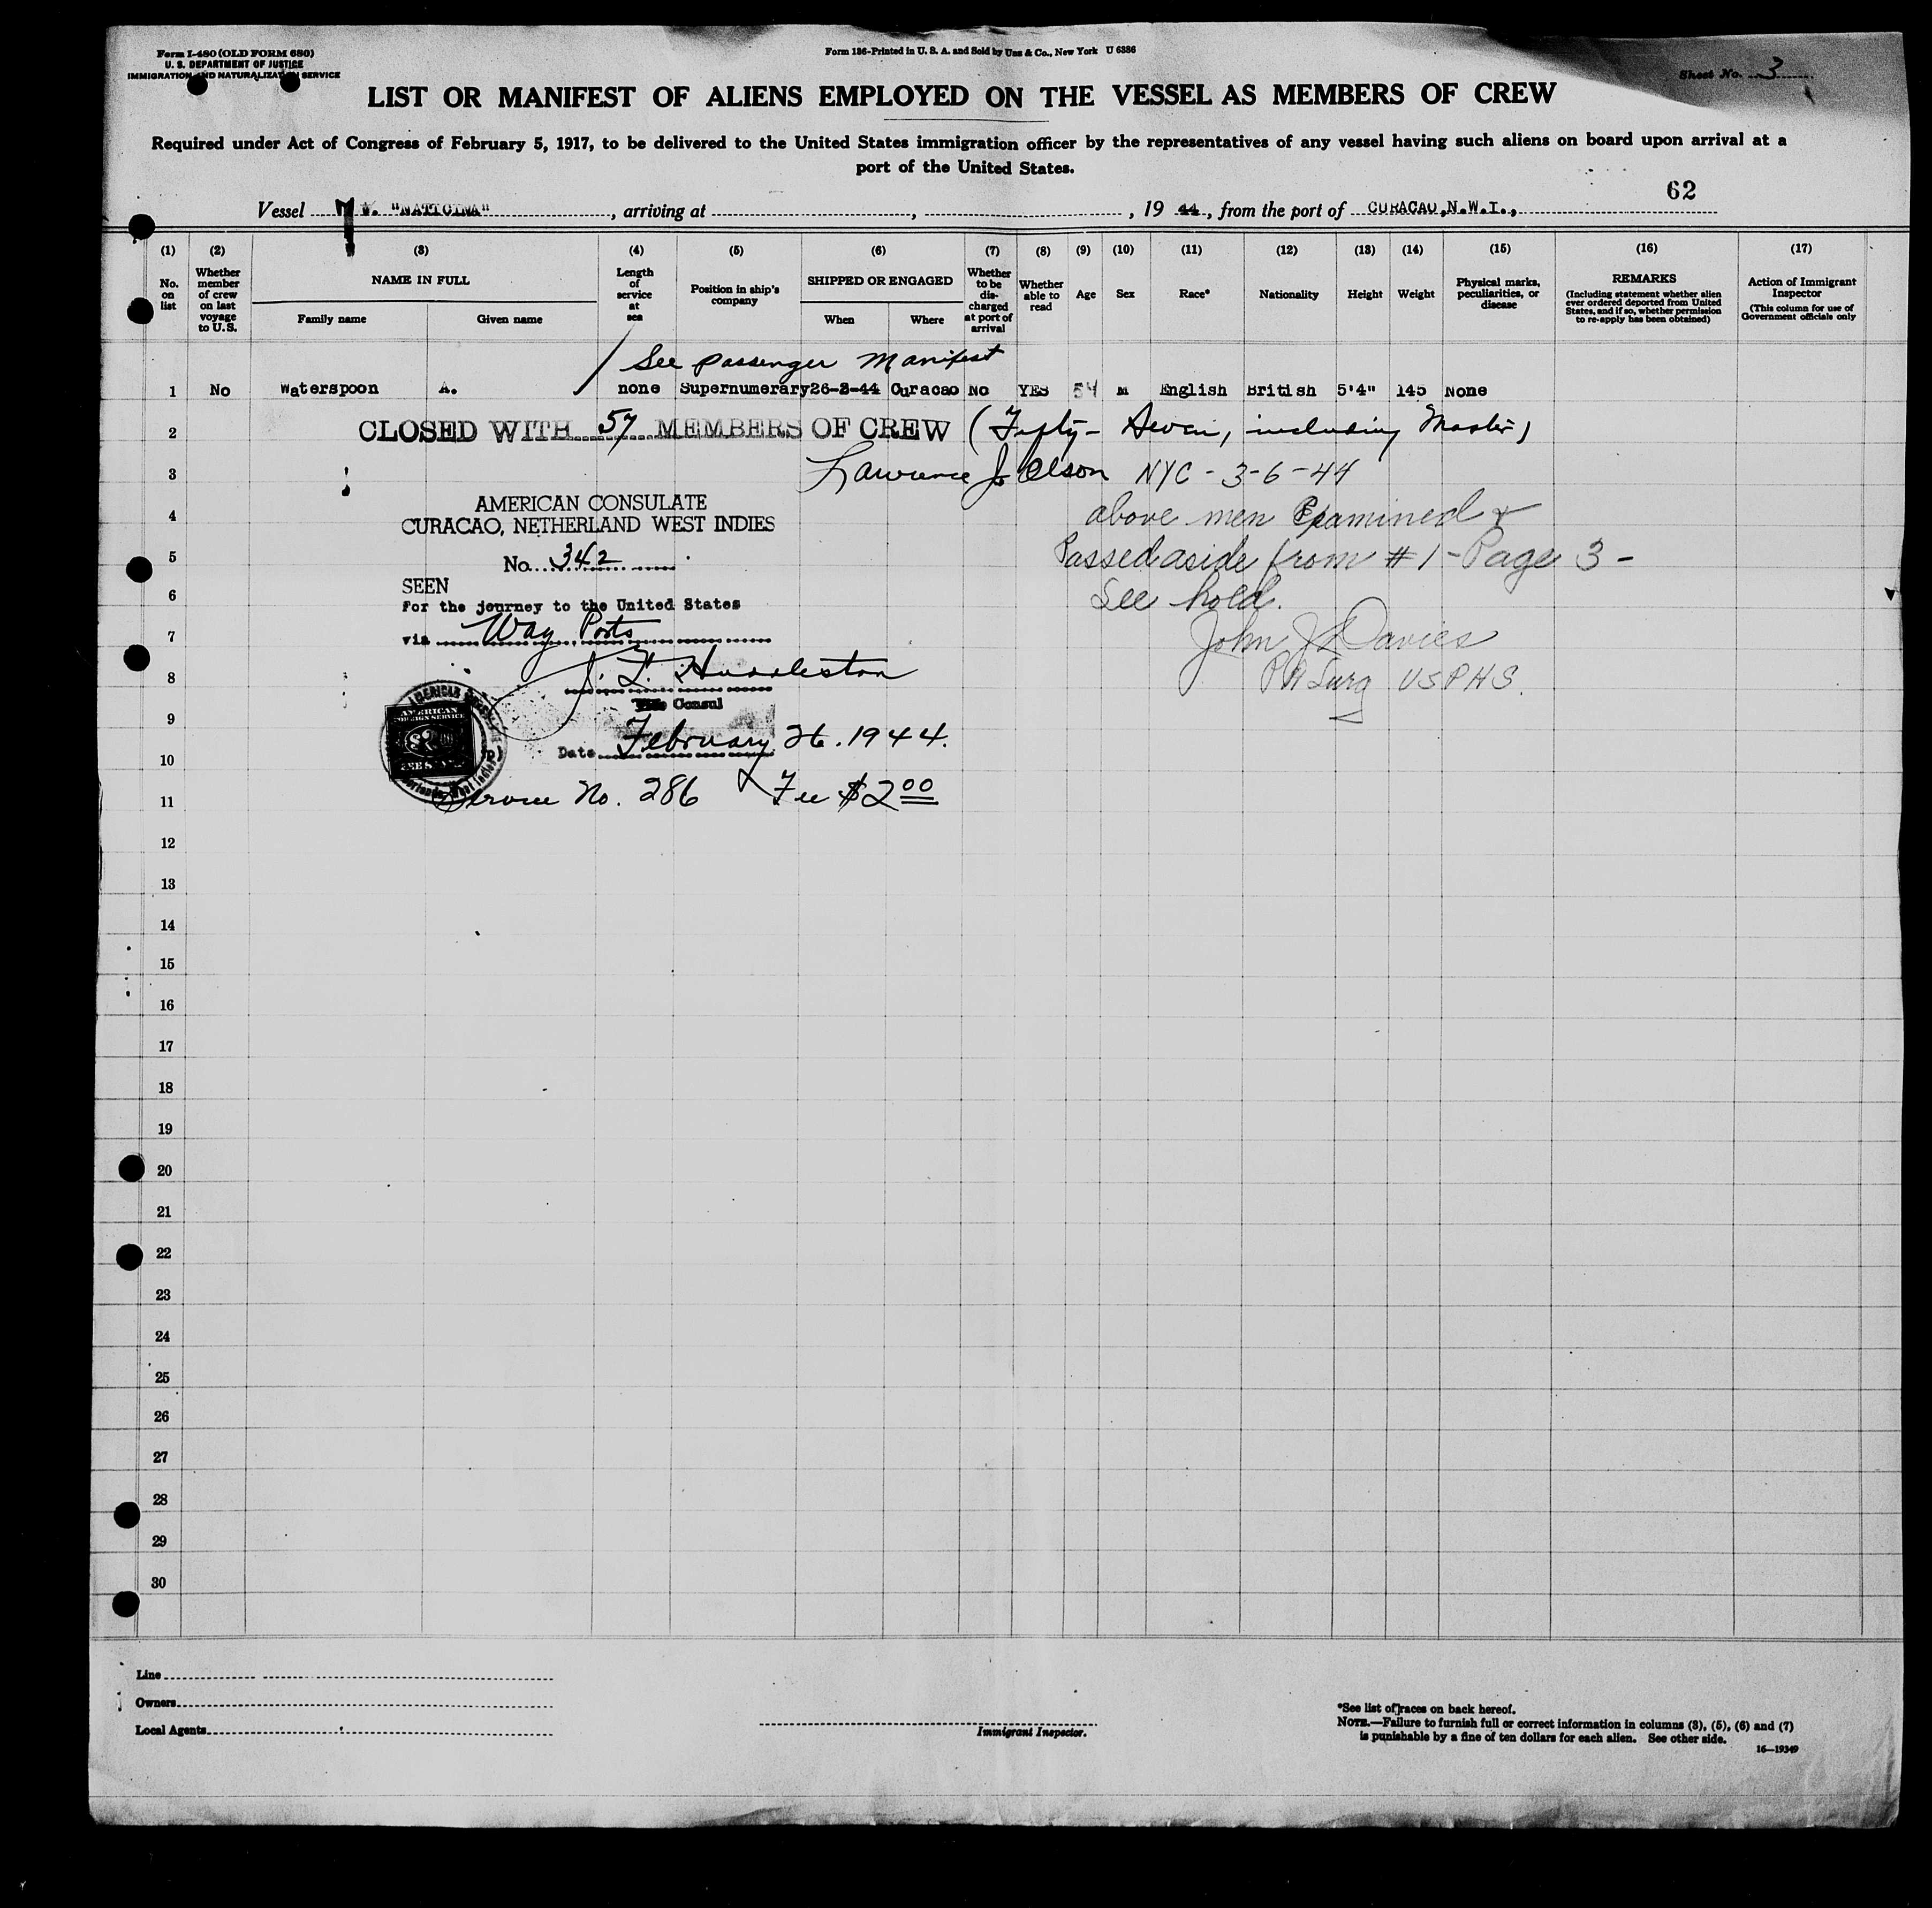 Form I-480 (OLD FORM 680)
U. S. DEPARTMENT OF JUSTICE
IMMIGRATION AND NATURALIZATION SERVICE
Form 136-Printed in U. S. A. and Sold by Unz & Co., New York U 6386
Sheet No. 3
LIST OR MANIFEST OF ALIENS EMPLOYED ON THE VESSEL AS MEMBERS OF CREW
Required under Act of Congress of February 5, 1917, to be delivered to the United States immigration officer by the representatives of any vessel having such aliens on board upon arrival at a
port of the United States.
62
Vessel "NATICINA", arriving at , , 19 44, from the port of CURACAO,N.W.I.,
(1) (2) (3) (4) (5) (6) (7) (8) (9) (10) (11) (12) (13) (14) (15) (16) (17)
No. on list
Whether member of crew on last voyage to U.S.
NAME IN FULL
Family name Given name
Length of service at sea
Position in ship's company
SHIPPED OR ENGAGED
When Where
Whether to be discharged at port of arrival
Whether able to read
Age
Sex
Race*
Nationality
Height
Weight
Physical marks, peculiarities, or disease
REMARKS
(Including statement whether alien ever ordered deported from United States, and if so, whether permission to re-apply has been obtained)
Action of Immigrant Inspector
(This column for use of Government officials only
See passenger Manifest
1 No Waterspoon A. none Supernumerary 26-2-44 Curacao No YES 54 M English British 5'4" 145 None
2 CLOSED WITH 57 MEMBERS OF CREW (Fifty-Seven, including Master)
3 Lawrence J. Olson NYC - 3-6-44
AMERICAN CONSULATE
4 above men Examined &
CURACAO, NETHERLAND WEST INDIES
5 Passed aside from #1 - Page 3 -
No. 342
SEEN
6 See hold.
For the journey to the United States
7 via Way Ports
John J. Davies
8 J. F. Huddleston
PA Surg USPHS.
Vice Consul
AMERICAN
FOREIGN SERVICE
9
Date February 26, 1944.
10
11 Service No. 286 Fee $2.00
12
13
14
15
16
17
18
19
20
21
22
23
24
25
26
27
28
29
30
Line
Owners
Local Agents
Immigrant Inspector.
*See list of races on back hereof.
NOTE.—Failure to furnish full or correct information in columns (3), (5), (6) and (7)
is punishable by a fine of ten dollars for each alien. See other side.
16—19349